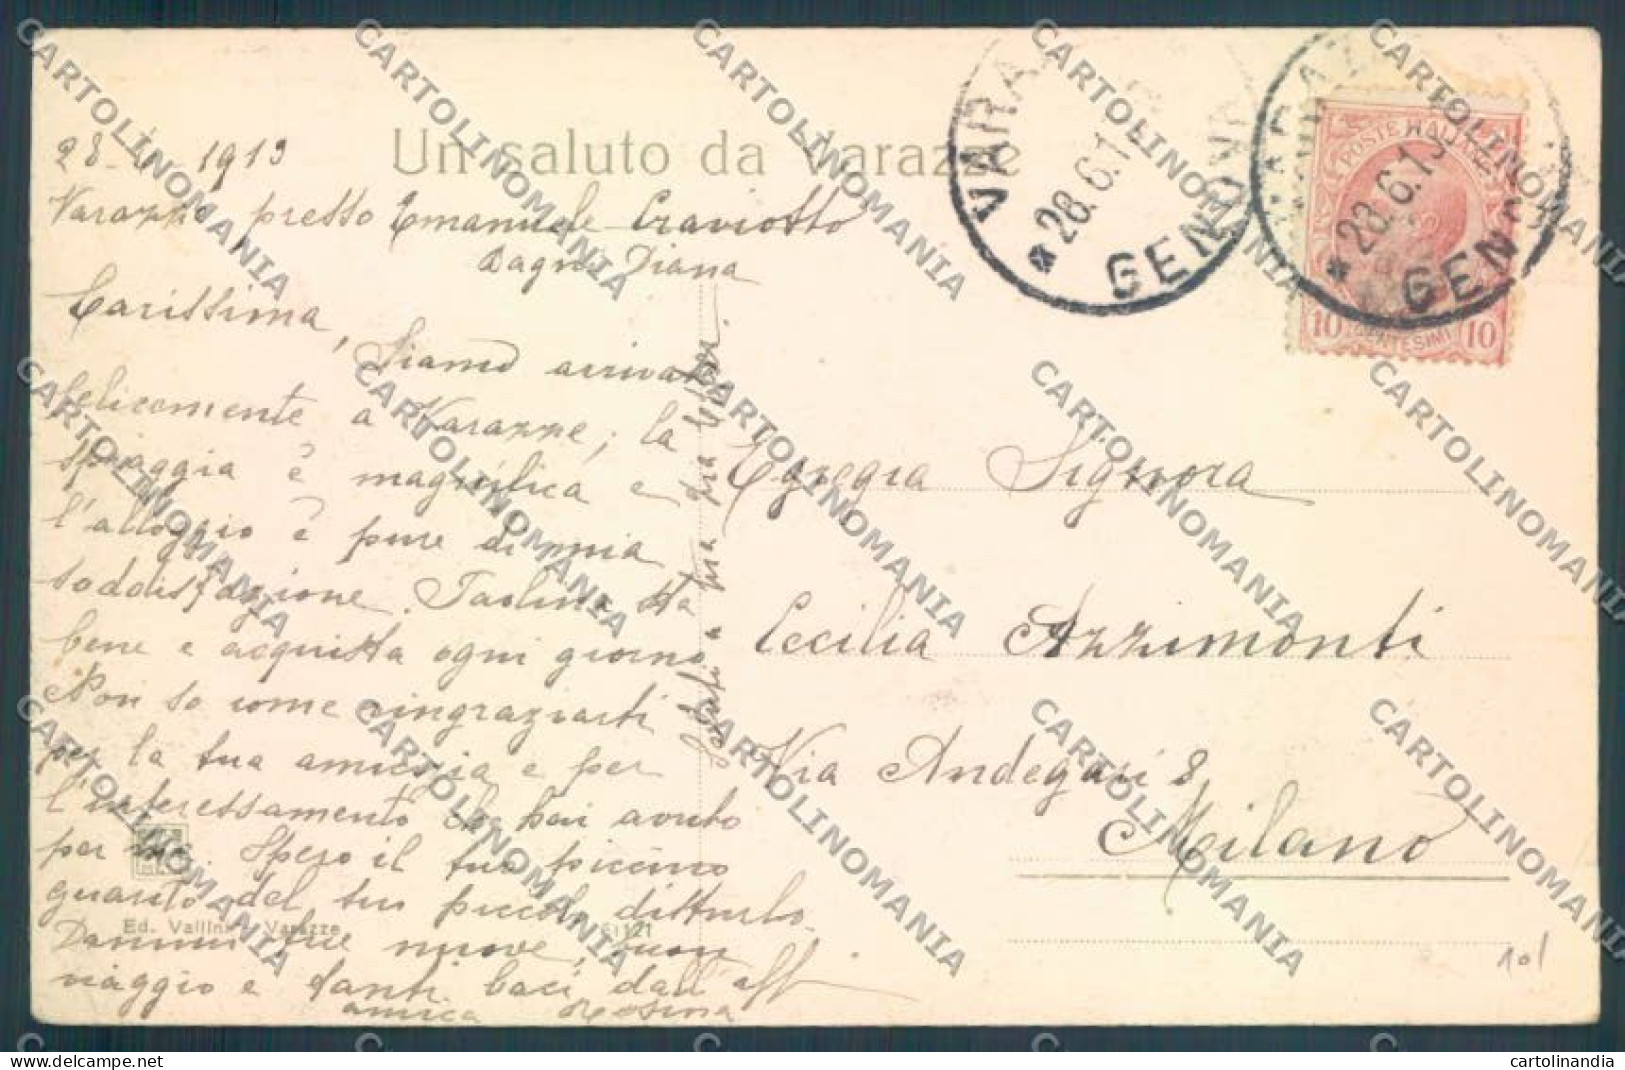 Un saluto da Varazze
28-6-1913
Varazze, presso Emanuele Craviotto
Bagni Diana
Carissima,
Siamo arrivati
felicemente a Varazze; la
spiaggia è magnifica e
l'alloggio è pure di mia
soddisfazione. Paolina sta
bene e acquista ogni giorno
Non so come ringraziarti
per la tua amicizia e per
l'interessamento che hai avuto
per me. Spero il tuo piccino
guarito del suo piccolo disturbo.
Dammi tue nuove, buon
viaggio e tanti baci dall'aff
amica Rosina
VARAZZE
GENOVA
28.6.13
VARAZZE
GENOVA
28.6.13
POSTE ITALIANE
10 CENTESIMI 10
Egregia Signora
Cecilia Azzimonti
Via Andegari 8
Milano
Ed. Vallino - Varazze
121
101
CARTOLINOMANIA
cartolinomania.com
cartolinandia